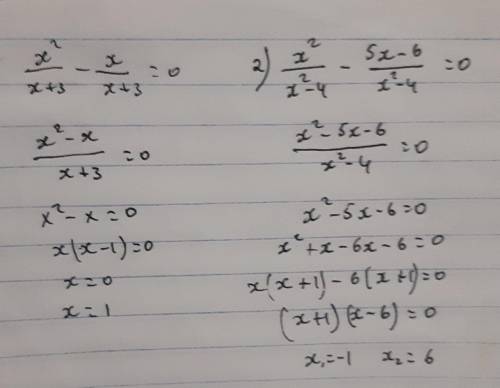 x²/(x+3) - x/(x+3) = 0
(x² - x)/(x+3) = 0
x² - x = 0
x(x-1) = 0
x = 0
x = 1
2) x²/(x²-4) - (5x-6)/(x²-4) = 0
(x² - 5x - 6)/(x²-4) = 0
x² - 5x - 6 = 0
x² + x - 6x - 6 = 0
x(x+1) - 6(x+1) = 0
(x+1)(x-6) = 0
x₁ = -1 x₂ = 6